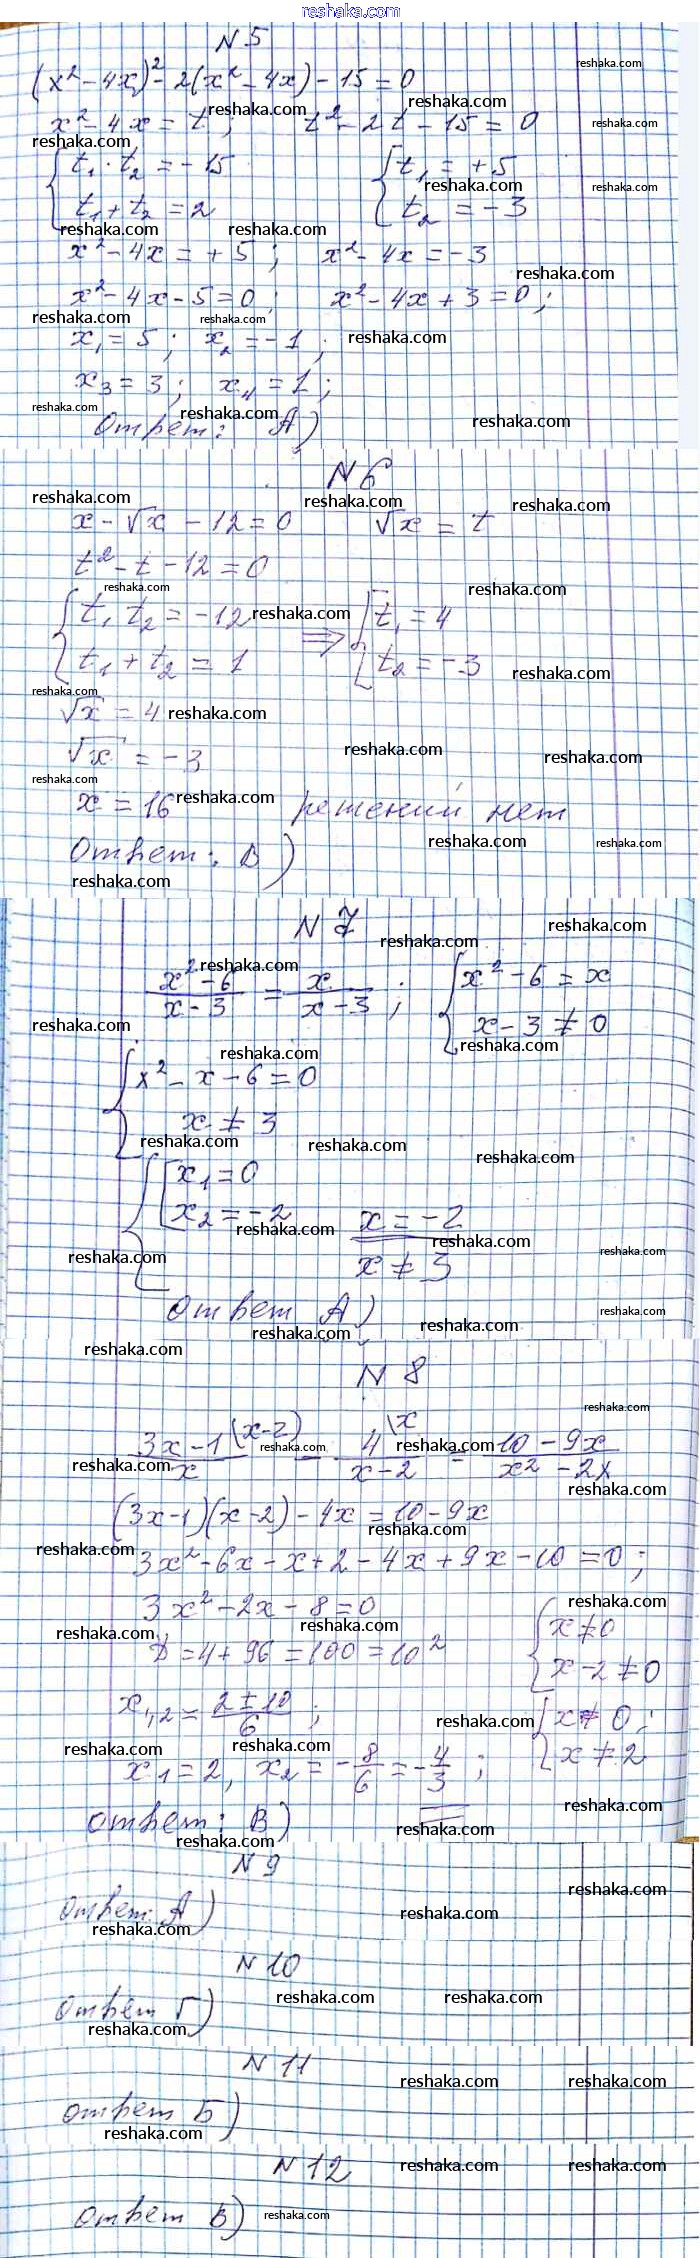 reshaka.com
N 5
(x² - 4x)² - 2(x² - 4x) - 15 = 0
x² - 4x = t ; t² - 2t - 15 = 0
{ t₁ · t₂ = -15 { t₁ = +5
t₁ + t₂ = 2 t₂ = -3
x² - 4x = +5 ; x² - 4x = -3
x² - 4x - 5 = 0 ; x² - 4x + 3 = 0 ;
x₁ = 5 ; x₂ = -1 ;
x₃ = 3 ; x₄ = 1 ;
Ответ: А)
N 6
x - √x - 12 = 0 √x = t
t² - t - 12 = 0
{ t₁ t₂ = -12 ⇒ [ t₁ = 4
t₁ + t₂ = 1 t₂ = -3
√x = 4
√x = -3
x = 16 решений нет
Ответ: В)
N 7
x² - 6 / x - 3 = x / x - 3 ; { x² - 6 = x
x - 3 ≠ 0
{ x² - x - 6 = 0
x ≠ 3
{ [ x₁ = 0
x₂ = -2 x = -2
x ≠ 3
Ответ А)
N 8
3x - 1 \(x-2) / x - 4 \x / x - 2 = 10 - 9x / x² - 2x
(3x-1)(x-2) - 4x = 10 - 9x
3x² - 6x - x + 2 - 4x + 9x - 10 = 0 ;
3x² - 2x - 8 = 0 { x ≠ 0
D = 4 + 96 = 100 = 10² x - 2 ≠ 0
x₁,₂ = 2 ± 10 / 6 ; { x ≠ 0 ;
x₁ = 2, x₂ = -8/6 = -4/3 ; x ≠ 2
ответ: В)
N 9
ответ: А)
N 10
ответ Г)
N 11
ответ Б)
N 12
ответ Б)